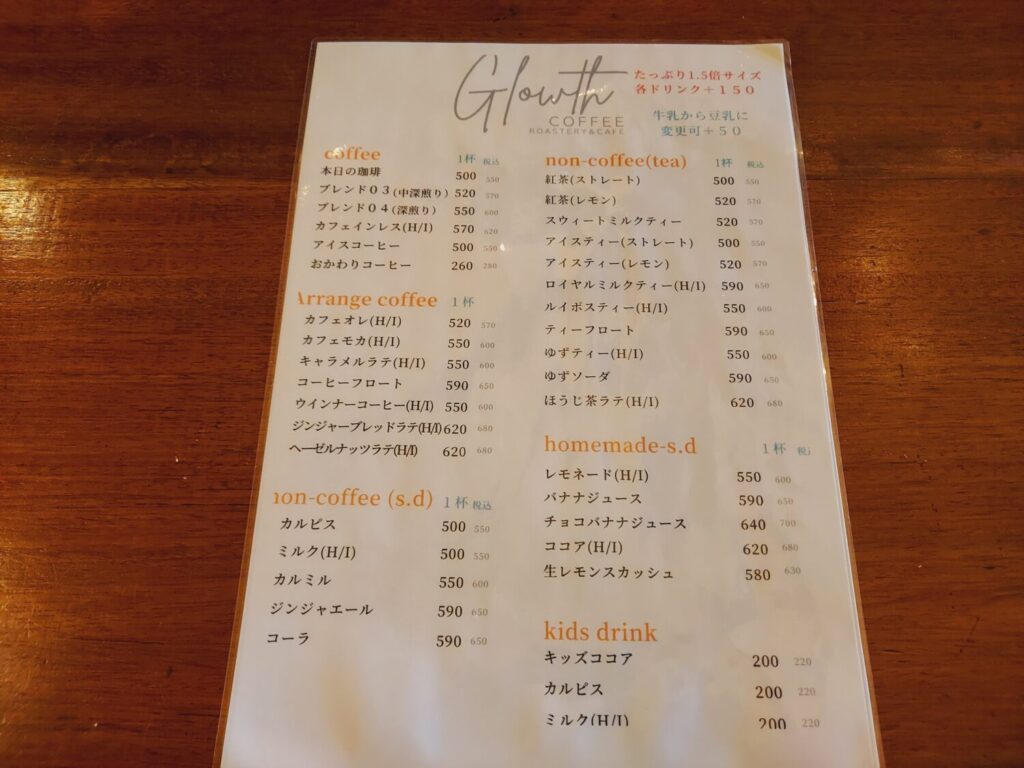 Glowth
COFFEE
ROASTERY&CAFE
たっぷり1.5倍サイズ
各ドリンク＋１５０
牛乳から豆乳に
変更可＋５０
coffee 1杯 税込
本日の珈琲 500 550
ブレンド０３(中深煎り) 520 570
ブレンド０４(深煎り) 550 600
カフェインレス(H/I) 570 620
アイスコーヒー 500 550
おかわりコーヒー 260 280
Arrange coffee 1杯
カフェオレ(H/I) 520 570
カフェモカ(H/I) 550 600
キャラメルラテ(H/I) 550 600
コーヒーフロート 590 650
ウインナーコーヒー(H/I) 550 600
ジンジャーブレッドラテ(H/I) 620 680
ヘーゼルナッツラテ(H/I) 620 680
non-coffee (s.d) 1杯 税込
カルピス 500 550
ミルク(H/I) 500 550
カルミル 550 600
ジンジャエール 590 650
コーラ 590 650
non-coffee(tea) 1杯 税込
紅茶(ストレート) 500 550
紅茶(レモン) 520 570
スウィートミルクティー 520 570
アイスティー(ストレート) 500 550
アイスティー(レモン) 520 570
ロイヤルミルクティー(H/I) 590 650
ルイボスティー(H/I) 550 600
ティーフロート 590 650
ゆずティー(H/I) 550 600
ゆずソーダ 590 650
ほうじ茶ラテ(H/I) 620 680
homemade-s.d 1杯 税
レモネード(H/I) 550 600
バナナジュース 590 650
チョコバナナジュース 640 700
ココア(H/I) 620 680
生レモンスカッシュ 580 630
kids drink
キッズココア 200 220
カルピス 200 220
ミルク(H/I) 200 220